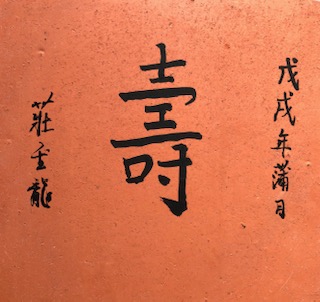 戊戌年蒲月
壽
莊玉龍